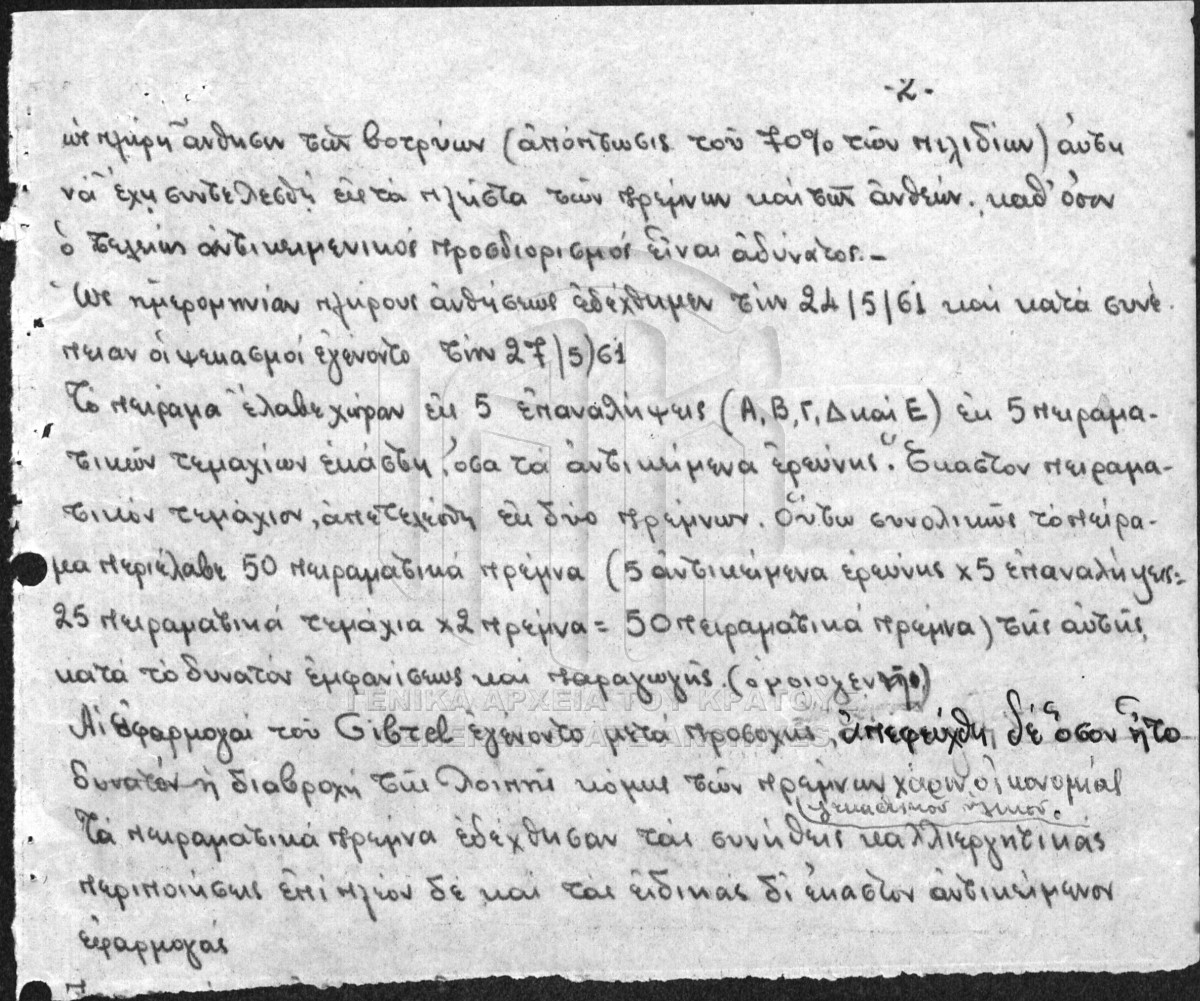 -2-
ὡς πλήρη ἄνθησιν τῶν βοτρύων (ἀπόπτωσις τοῦ 70% τῶν πιλιδίων) αὐτη
νὰ ἔχῃ συντελεσθῆ εἰς τὰ πλεῖστα τῶν πρέμνων καὶ τῶν ἀνθεών, καθ' ὅσον
ὁ τελείως ἀντικειμενικός προσδιορισμός εἶναι ἀδύνατος.-
Ὡς ἡμερομηνίαν πλήρους ἀνθήσεως ἐδέχθημεν τὴν 24/5/61 καὶ κατά συνέ-
πειαν οἱ ψεκασμοί ἐγένοντο τὴν 27/5/61
Τὸ πείραμα ἔλαβε χώραν εἰς 5 ἐπαναλήψεις (Α, Β, Γ, Δ καὶ Ε) ἐκ 5 πειραμα-
τικῶν τεμαχίων ἑκάστη, ὅσα τὰ ἀντικείμενα ἐρεύνης. Ἕκαστον πειραμα-
τικόν τεμάχιον, ἀπετελέσθη ἐκ δύο πρέμνων. Οὕτω συνολικῶς τὸ πείρα-
μα περιέλαβε 50 πειραματικά πρέμνα (5 ἀντικείμενα ἐρεύνης x 5 ἐπαναλήψεις=
25 πειραματικά τεμάχια x2 πρέμνα = 50 πειραματικά πρέμνα) τῆς αὐτῆς,
κατά τὸ δυνατόν ἐμφανίσεως καὶ παραγωγῆς. (ὁμοιογενῆ)
ΓΕΝΙΚΑ ΑΡΧΕΙΑ ΤΟΥ ΚΡΑΤΟΥΣ
Αἱ ἐφαρμογαί τοῦ Gibtel ἐγένοντο μετά προσοχῆς, ἀπεφεύχθη δέ ὅσον ἦτο
GENERAL STATE ARCHIVES
δυνατόν ἡ διαβροχή τῆς λοιπῆς κόμης τῶν πρέμνων χάριν οἰκονομίας
ψεκαστικοῦ ὑλικοῦ.
Τὰ πειραματικά πρέμνα ἐδέχθησαν τάς συνήθεις καλλιεργητικάς
περιποιήσεις ἐπί πλέον δέ καὶ τάς εἰδικας δι' ἕκαστον ἀντικείμενον
ἐφαρμογάς